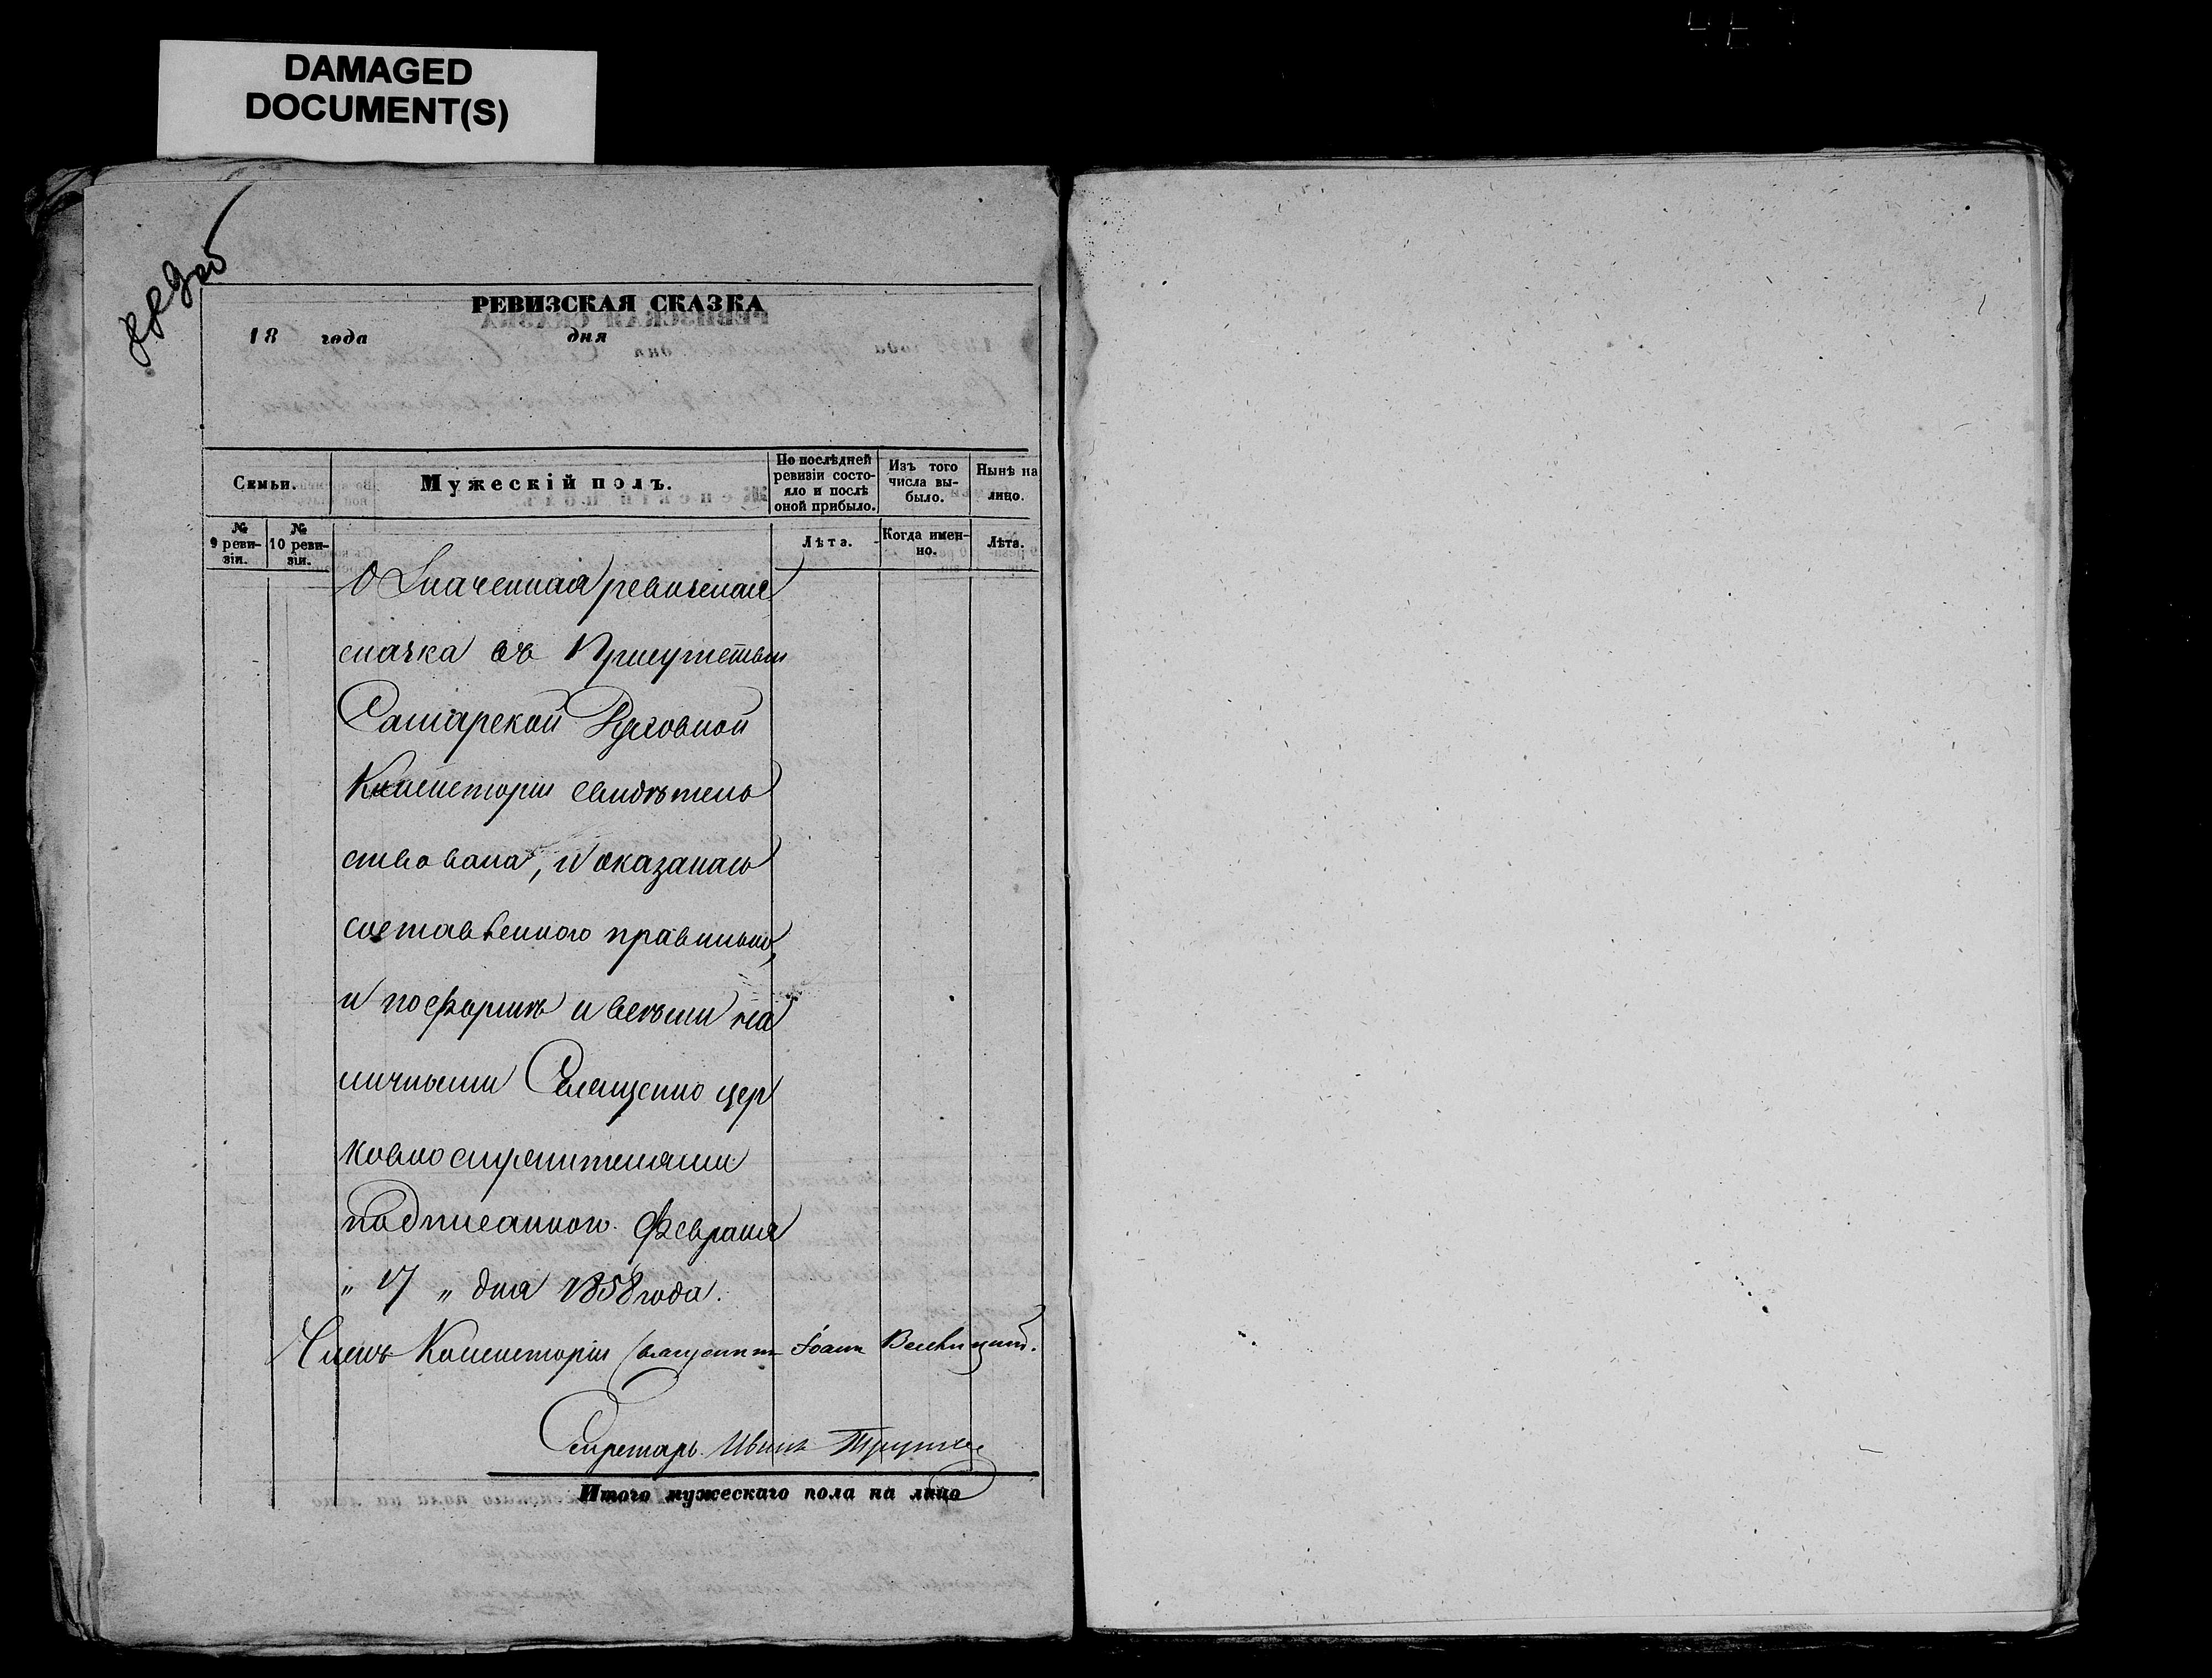 DAMAGED
DOCUMENT(S)
РЕВИЗСКАЯ СКАЗКА
18 года дня
Семьи.
Мужескій полъ.
По послѣдней ревизіи состо-
яло и послѣ
оной прибыло.
Изъ того
числа вы-
было.
Нынѣ на
лицо.
№
9 реви-
зіи.
№
10 реви-
зіи.
Лѣта.
Когда имен-
но.
Лѣта.
Означенная ревизская
сказка въ Присутствіи
Самарской Духовной
Консисторіи свидѣтель
ствована, и оказалась
составленною правильно,
и по формѣ и всѣми на
личными Священно цер
ковнослужителями
подписанною. Февраля
„ 17 „ дня 1858 года.
Членъ Консисторіи Священникъ Іоаннъ
Секретарь Иванъ
Итого мужескаго пола на лицо